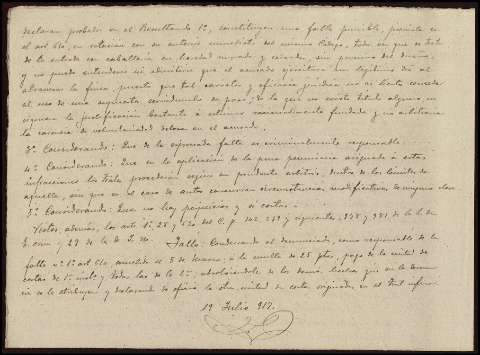 declaran probados en el Resultando 1º, constituyen una falta punible, prevista en
el art. 610, en relación con su anterior inmediato del mismo Código, toda vez que se trata
de la entrada con caballería en heredad murada y cercada, sin permiso del dueño,
y no puede entenderse ni admitirse que el acusado ejercitara un legítimo dro al
atravesar la finca, puesto que tal carácter y eficacia jurídica no se puede conceder
al uso de una supuesta servidumbre de paso, de la que no consta título alguno, ni
siquiera la justificación bastante á estimar racionalmente fundada y no arbitraria
la carencia de voluntariedad dolosa en el acusado.
3º Considerando: Que de la expresada falta es criminalmente responsable
4º Considerando: Que en la aplicación de la pena pecuniaria asignada á estas
infracciones los Trales procederán según su prudente arbitrio, dentro de los límites de
aquella, sin que en el caso de autos concurran circunstancias modificativas de ninguna clase.
5º Considerando: Que no hay perjuicios y sí costas.
Vistos, además, los arts. 1º, 28 y 620 del C. p. 142, 239 y siguientes, 978 y 981 de la L. de
E. crim y 29 de la de J. M. Fallo: Condenando al denunciado, como responsable de la
falta del art. 610, cometida el 3 de Enero, á la multa de 25 ptas, pago de la mitad de
costas de 1ª inst.ª y todas las de la 2ª, absolviéndole de los demás hechos que en la denun-
cia se le atribuyen y declarando de oficio la otra mitad de costas originadas en el Tral inferior
19 Julio 917.